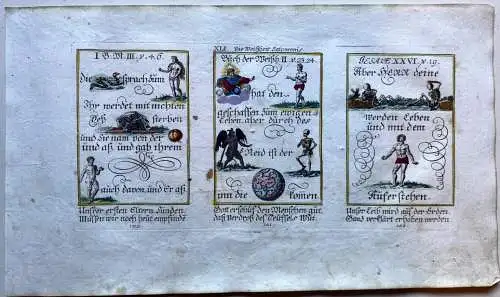 I B. M. III. v. 4. 6.
die sprach zum
Ihr werdet mit nichten
sterben
und die nam von der
und aß und gab ihrem
auch davon, und Er aß
Unsrer ersten Eltern Sünden
Müssen wir noch heut empfinden
XLI. Die Weißheit Salomonis
Buch der Weißh. II v. 23. 24.
hat den
geschaffen zum ewigen
Leben, aber durch des
Neid ist der
inn die komen
Gott erschuf den Menschen gut
das verdroß des Teuffels Wut
ESAIÆ XXVI. v. 19.
Aber HERR deine
werden Leben
und mit dem
Aufferstehen.
Unser Leib wird aus der Erden
Ganz verklärt erhaben werden